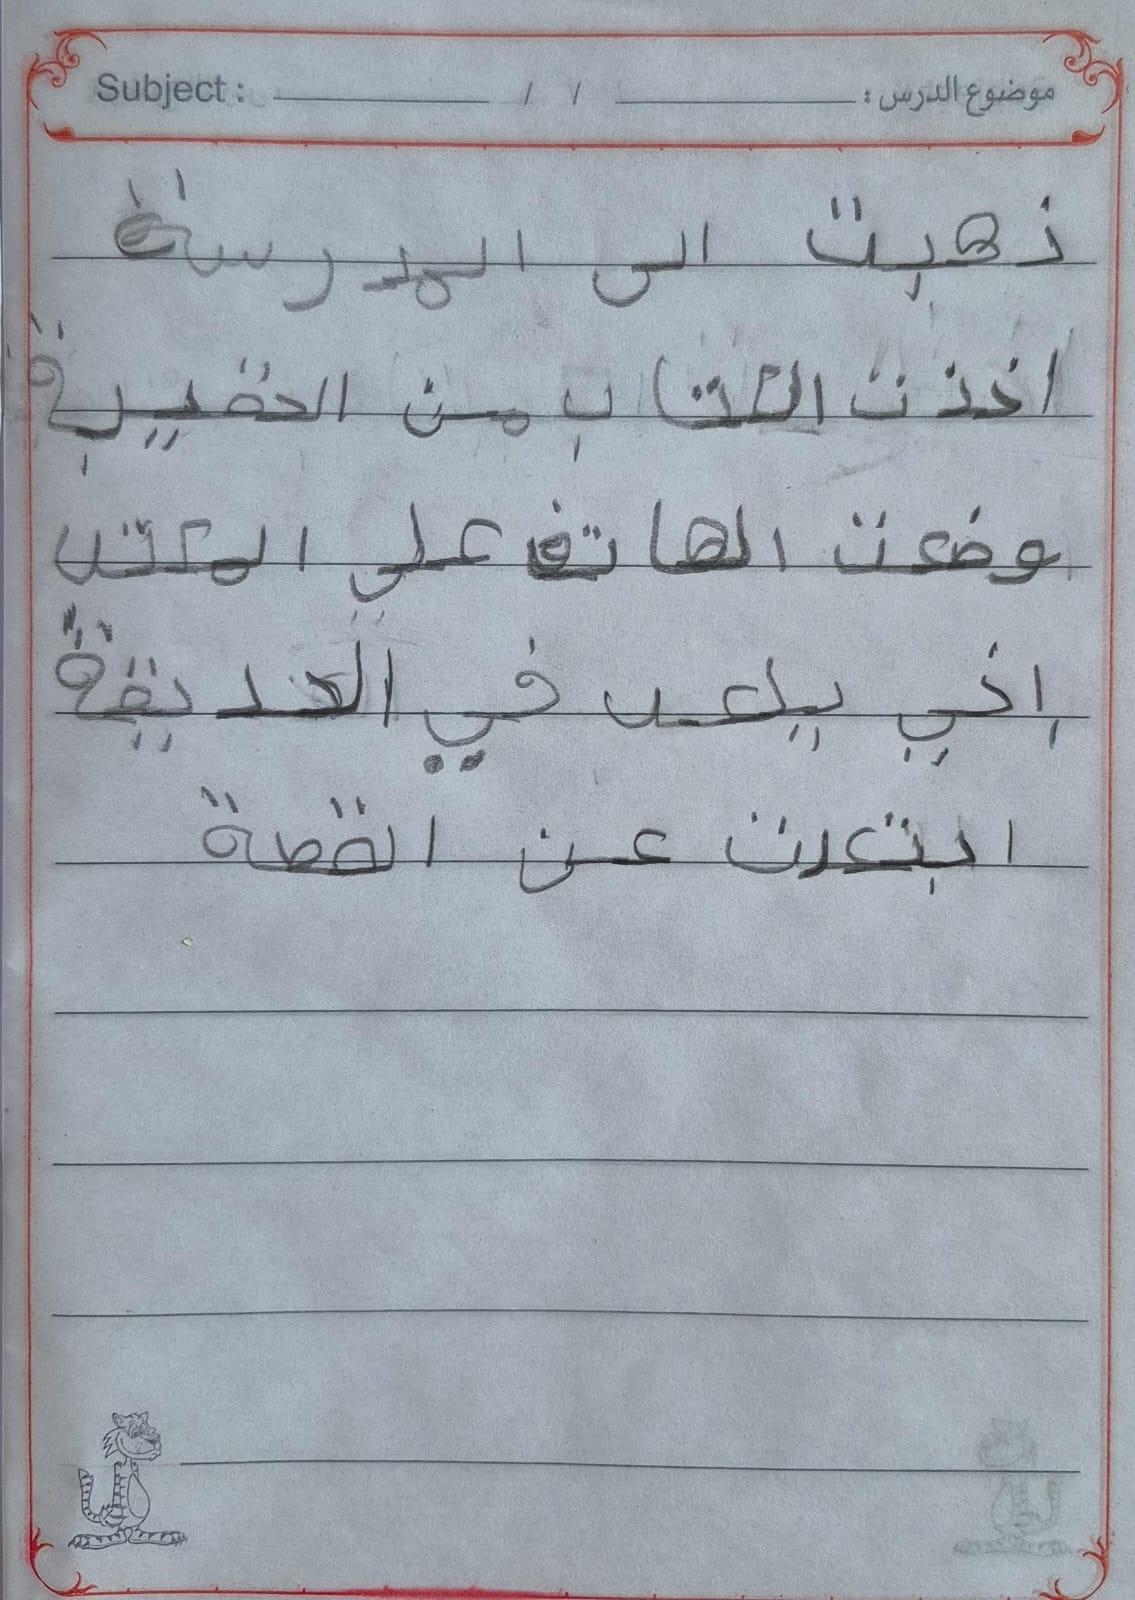 Subject : / / موضوع الدرس :
ذهبت الى المدرسة
اخذت الكتاب من الحقيبة
وضعت الهاتف على المكتب
إخي يلعب في الحديقة
ابتعدت عن القطة